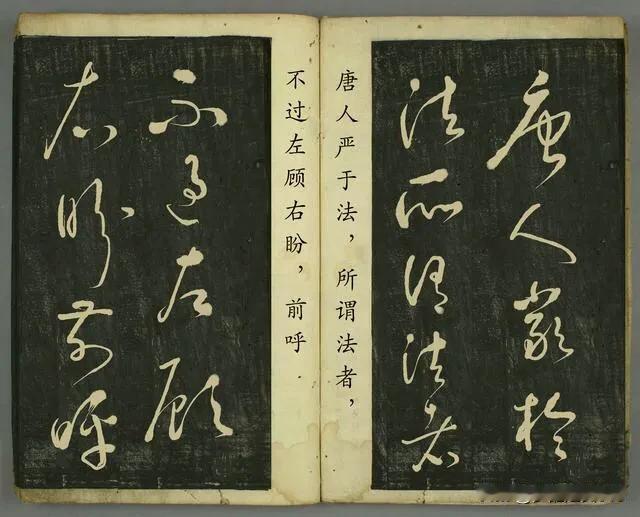 唐人严於
法所谓法者
唐人严于法，所谓法者，
不过左顾右盼，前呼
不过左顾
右盼前呼